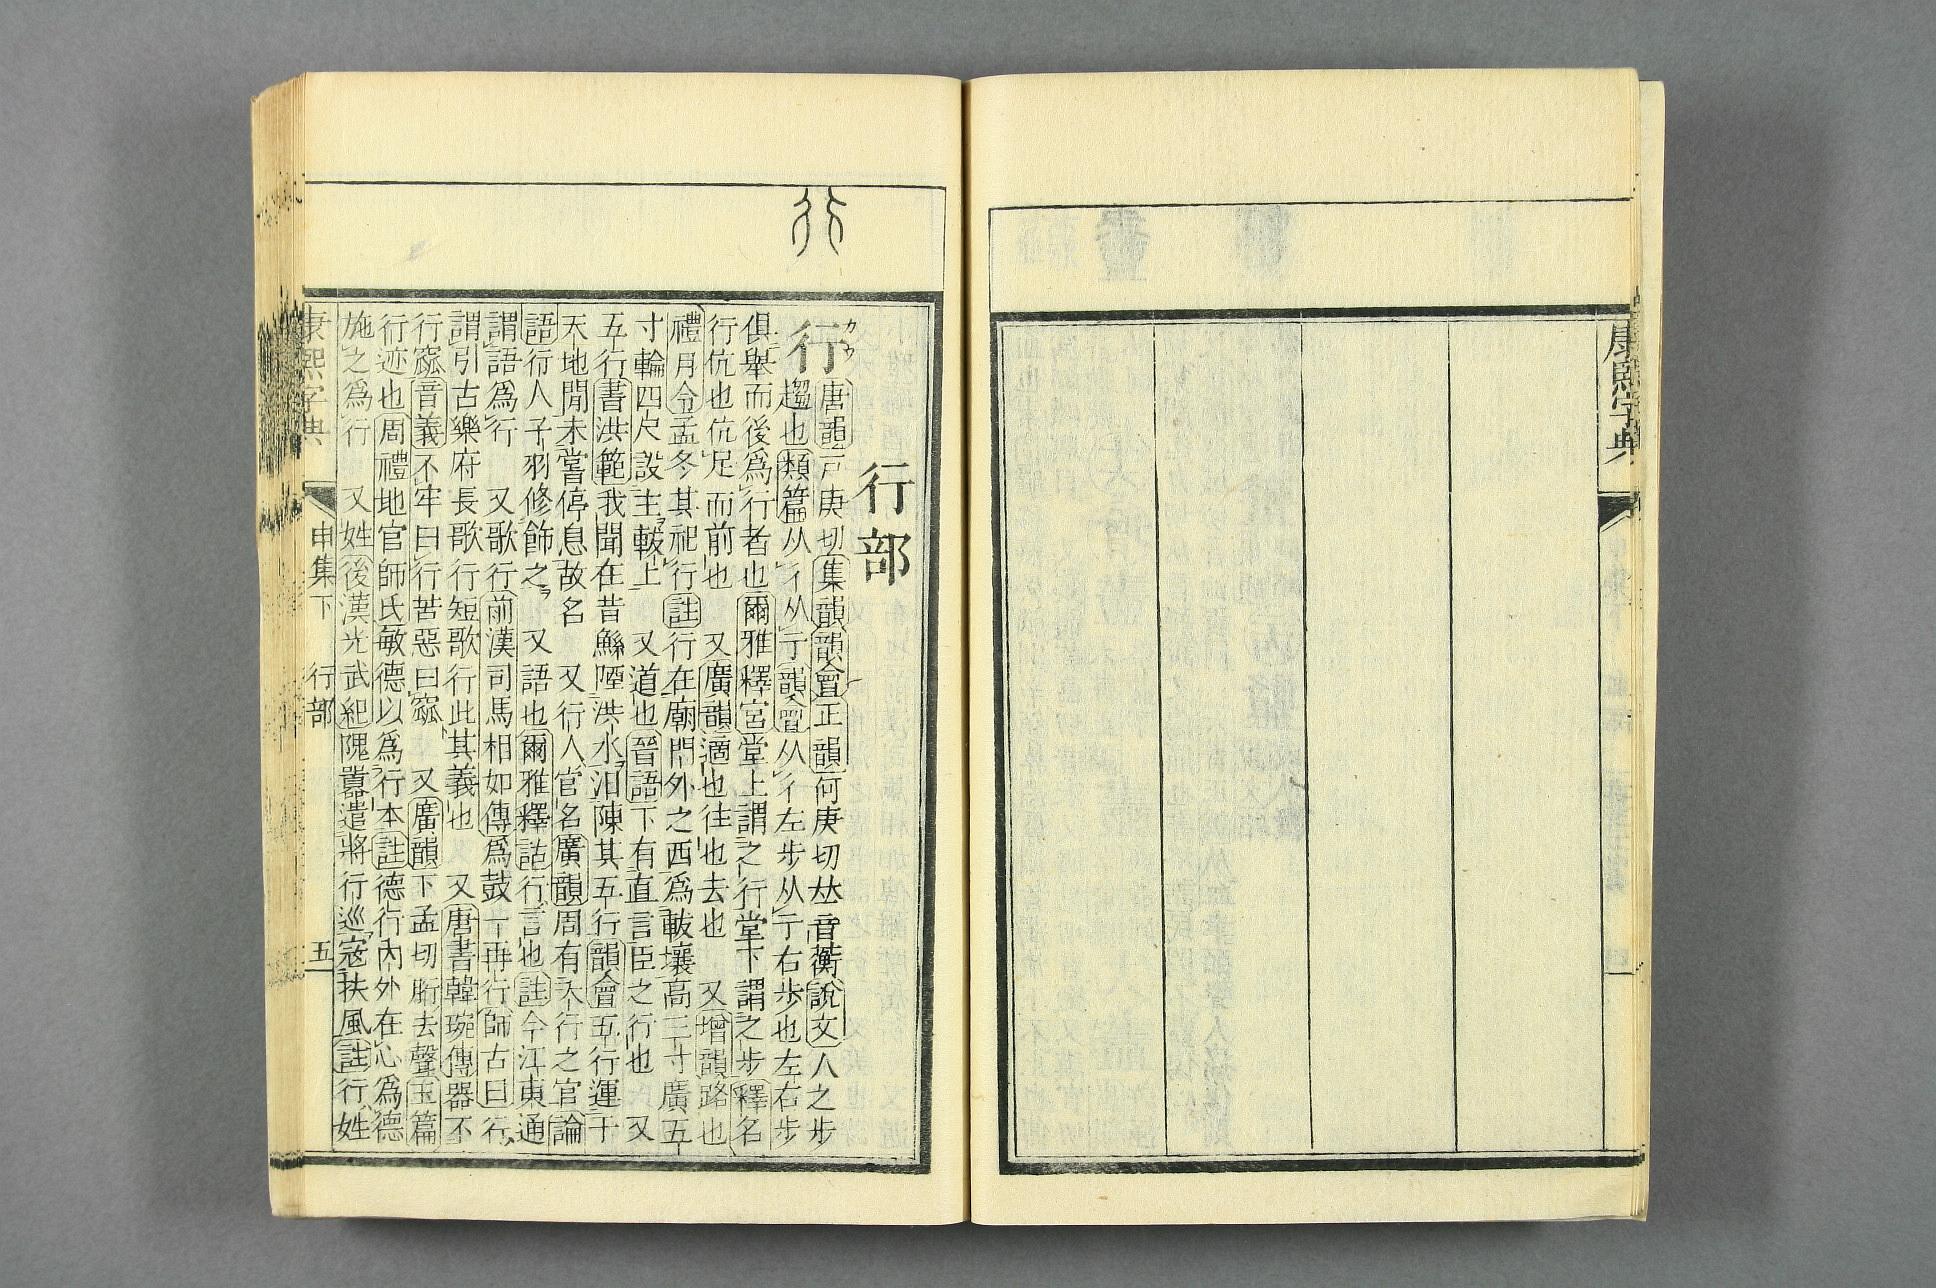 康熙字典
行部
行
カウ
唐韻戸庚切集韻韻會正韻何庚切𠀤音衡說文人之步
趨也類篇从彳从亍韻會从彳左步从亍右步也左右步
俱舉而後爲行者也爾雅釋宮堂上謂之行堂下謂之步釋名
行伉也伉足而前也 又廣韻適也往也去也 又增韻路也
禮月令孟冬其祀行註行在廟門外之西爲軷壤高三寸廣五
寸輪四尺設主軷上 又道也晉語下有直言臣之行也 又
五行書洪範我聞在昔鯀陻洪水汨陳其五行韻會五行運于
天地閒未嘗停息故名 又行人官名廣韻周有大行之官論
語行人子羽修飾之 又語也爾雅釋詁行言也註今江東通
謂語爲行 又歌行前漢司馬相如傳爲鼓一再行師古曰行
謂引古樂府長歌行短歌行此其義也 又唐書韓琬傳器不
行窳音義不牢曰行苦惡曰窳 又廣韻下孟切胻去聲玉篇
行迹也周禮地官師氏敏德以爲行本註德行內外在心爲德
施之爲行 又姓後漢光武紀隗囂遣將行巡寇扶風註行姓
康熙字典 申集下 行部 五